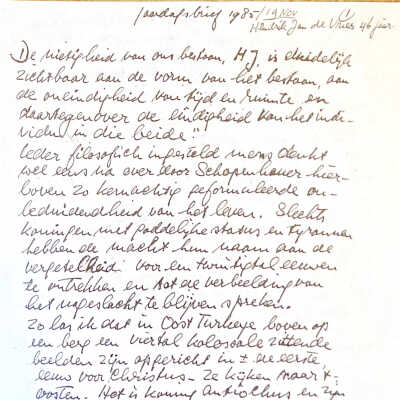 Jaardagsbrief 1985/19 Nov
Hendrik Jan de Vries 46 jaar
"De nietigheid van ons bestaan, H J, is duidelijk
zichtbaar aan de vorm van het bestaan, aan
de oneindigheid van tijd en ruimte en
daartegenover de eindigheid van het indi-
vidu in die beide"
Ieder filosofisch ingesteld mens denkt
wel eens na over door Schopenhauer hier-
boven zo kernachtig geformuleerde on-
beduidendheid van het leven. Slechts
koningen met goddelijke status en tyrannen
hebben de macht hun naam aan de
vergetelheid voor een twintigtal eeuwen
te onttrekken en tot de verbeelding van
het nageslacht te blijven spreken.
Zo las ik dat in Oost Turkeye boven op
een berg een viertal kolossale zittende
beelden zijn opgericht in ± de eerste
eeuw voor Christus - Ze kijken naar 't
oosten. Het is koning Antiochus en zijn